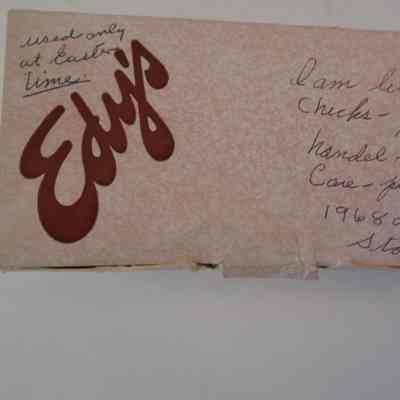 used only
at Easter
time.
Edy's
I am
Chicks -
handel -
Care -
1968